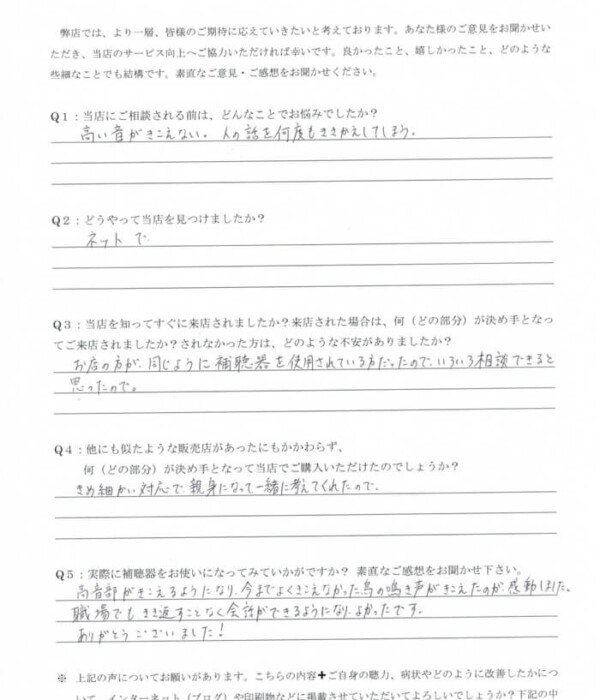 弊店では、より一層、皆様のご期待に応えていきたいと考えております。あなた様のご意見をお聞かせい
ただき、当店のサービス向上へご協力いただければ幸いです。良かったこと、嬉しかったこと、どのような
些細なことでも結構です。素直なご意見・ご感想をお聞かせください。
Q1：当店にご相談される前は、どんなことでお悩みでしたか？
高い音がきこえない。人の話を何度もききかえしてしまう。
Q2：どうやって当店を見つけましたか？
ネットで
Q3：当店を知ってすぐに来店されましたか？来店された場合は、何（どの部分）が決め手となっ
てご来店されましたか？されなかった方は、どのような不安がありましたか？
お店の方が、同じように補聴器を使用されている方だったので、いろいろ相談できると
思ったので。
Q4：他にも似たような販売店があったにもかかわらず、
何（どの部分）が決め手となって当店でご購入いただけたのでしょうか？
きめ細かい対応で親身になって一緒に考えてくれたので、
Q5：実際に補聴器をお使いになってみていかがですか？ 素直なご感想をお聞かせ下さい。
高音部がきこえるようになり、今までよくきこえなかった鳥の鳴き声がきこえたのが、感動しました。
職場でもきき返すことなく会話ができるようになり、よかったです。
ありがとうございました！
※ 上記の声についてお願いがあります。こちらの内容＋ご自身の聴力、病状やどのように改善したかにつ
いて、インターネット（ブログ）や印刷物などに掲載させていただいてよろしいでしょうか？下記の中